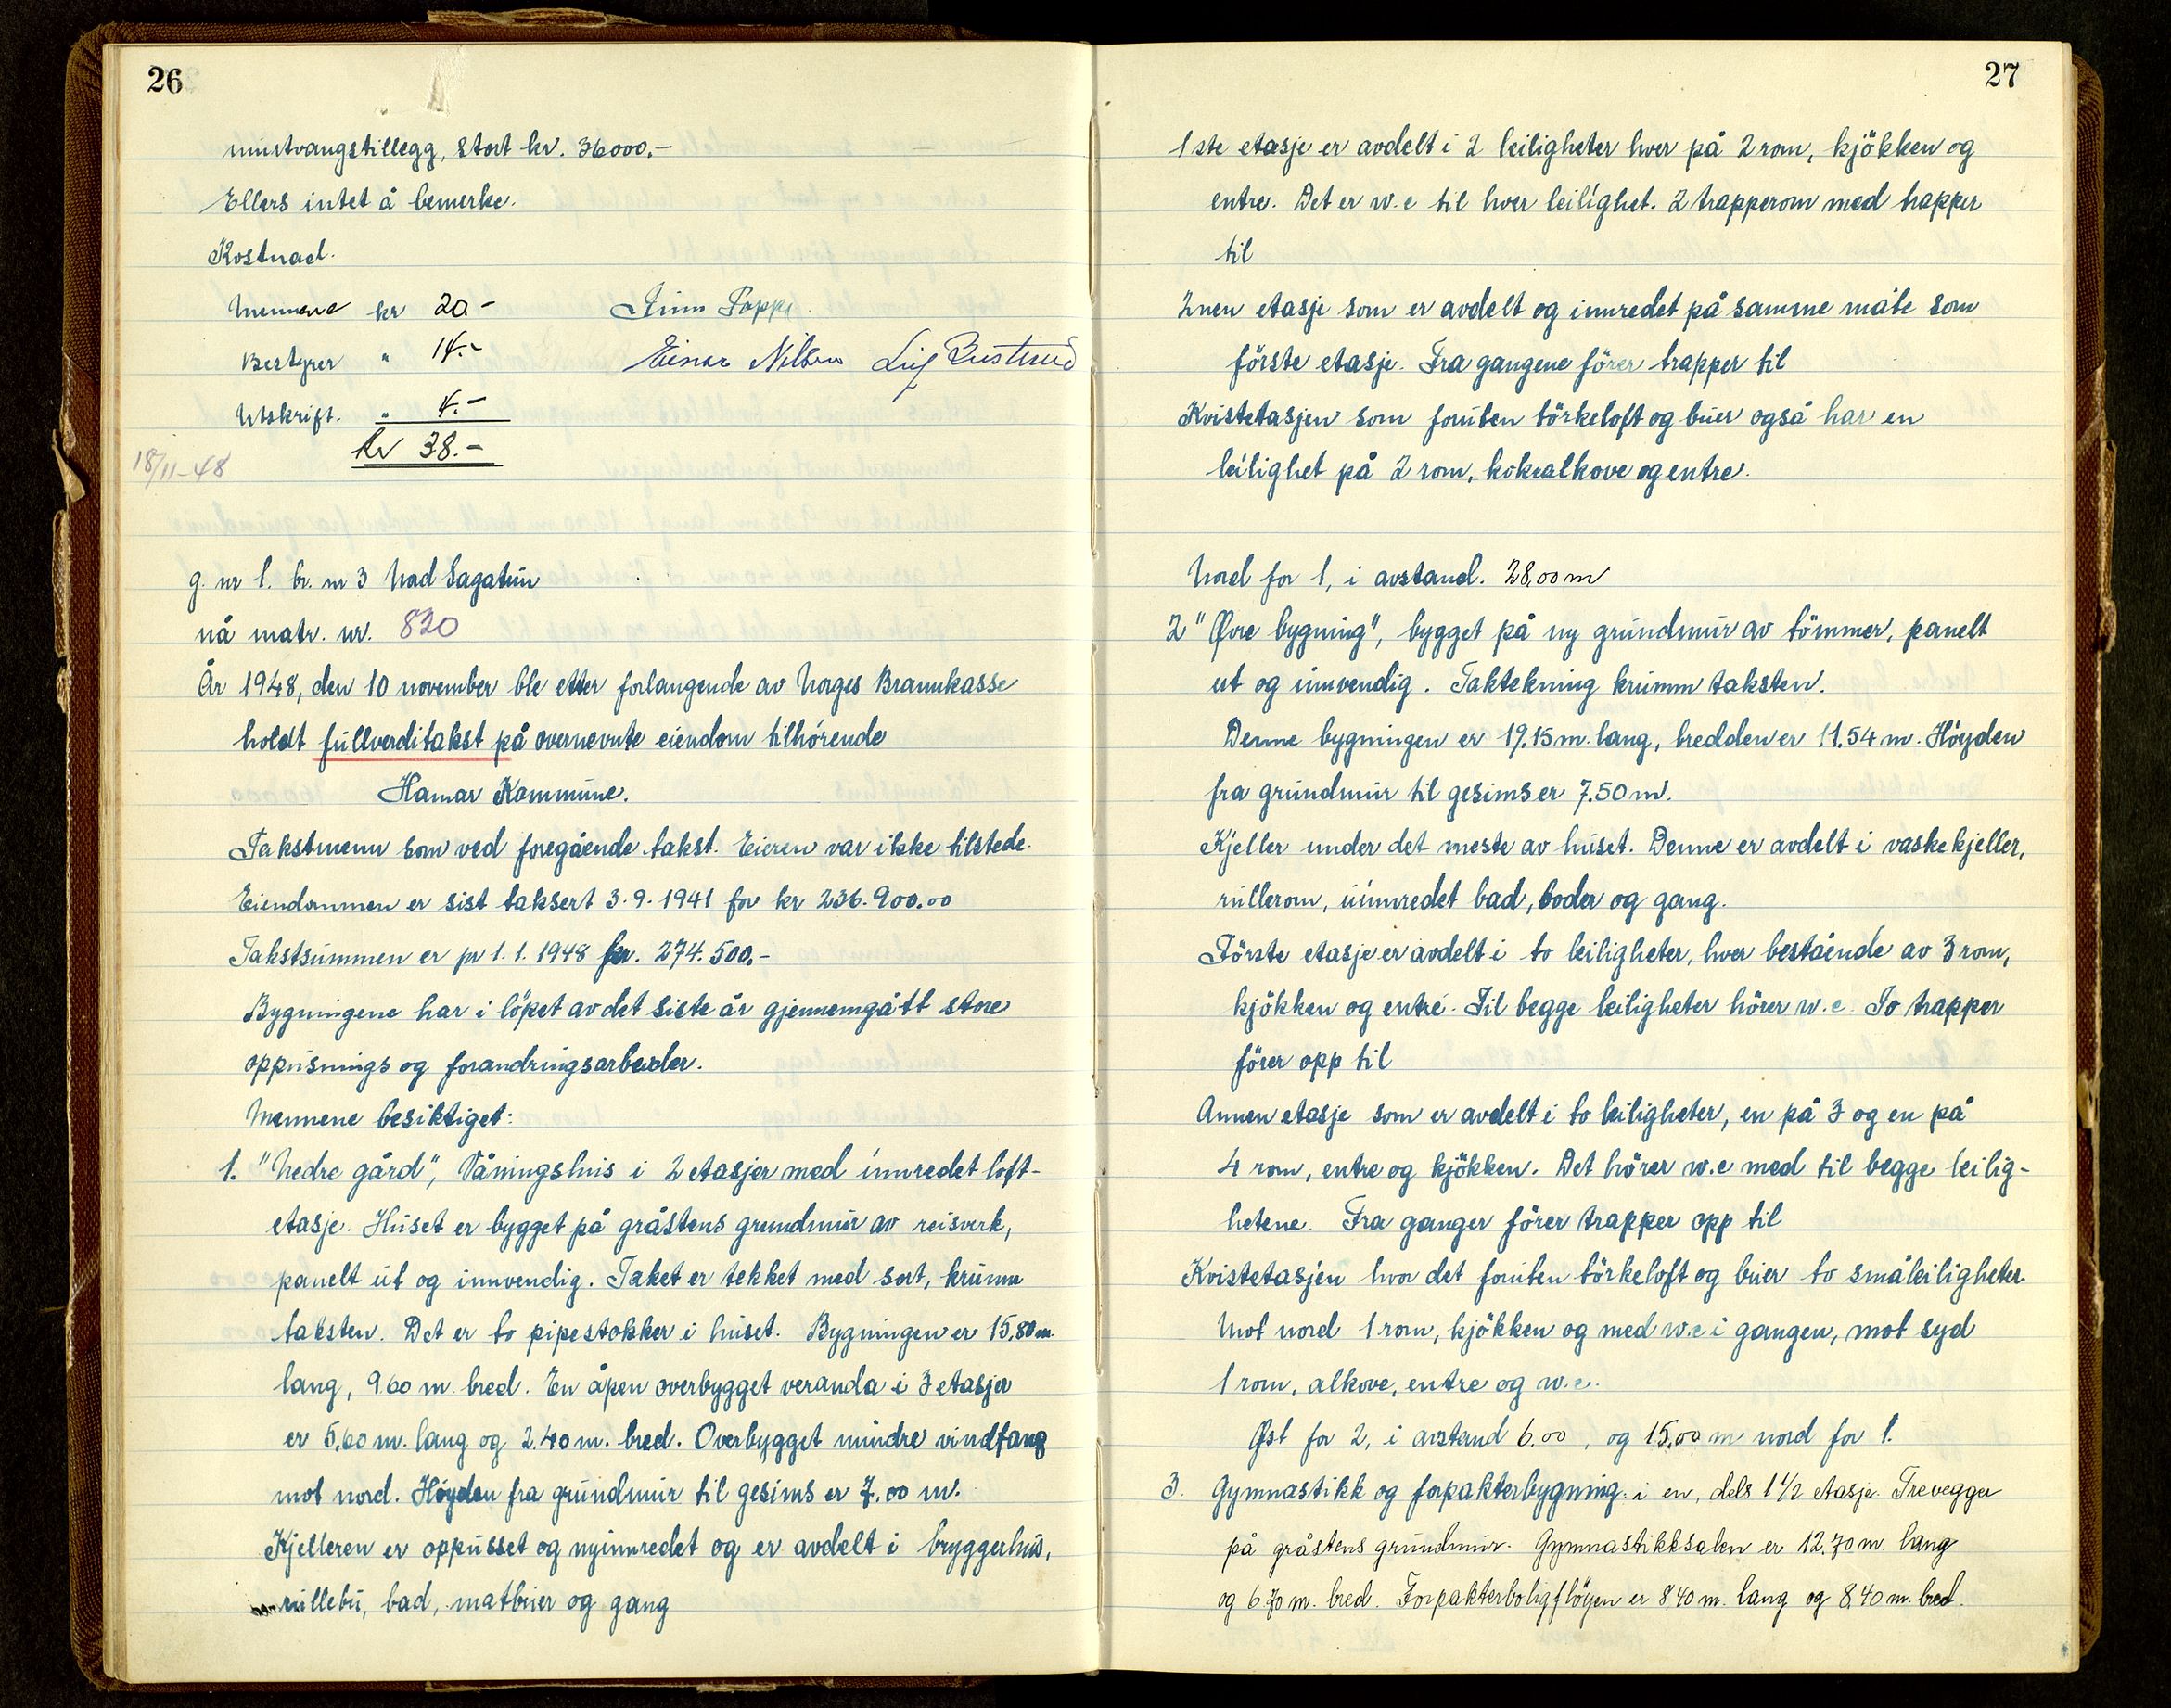 26
minstvangstillegg, stort kr. 36000.-
Ellers intet å bemerke.
Kostnad.
Mennene kr 20.-
Bestyrer " 14.- Einar Nilsen
Utskrift. " 4.-
kr 38.-
18/11-48
g. nr 1. br. nr 3 Nad Sagatun
nå matr. nr. 820
År 1948, den 10 november ble etter forlangende av Norges Brannkasse
holdt fullverditakst på overnevnte eiendom tilhörende
Hamar Kommune.
Takstmenn som ved foregående takst. Eieren var ikke tilstede.
Eiendommen er sist taksert 3.9.1941 for kr 236.900.00
Takstsummen er pr 1.1.1948 kr. 274.500.-
Bygningene har i löpet av det siste år gjennemgått store
oppusnings og forandringsarbeider.
Mennene besiktiget:
1. "Nedre gård", Våningshus i 2 etasjer med innredet loft-
etasje. Huset er bygget på gråstens grundmur av reisverk,
panelt ut og innvendig. Taket er tekket med sort, krumm
taksten. Det er to pipestokker i huset. Bygningen er 15,80 m.
lang, 9.60 m bred. En åpen overbygget veranda i 3 etasjer
er 5,60 m. lang og 2.40 m. bred. Overbygget mindre vindfang
mot nord. Höyden fra grundmur til gesims er 7.00 m.
Kjelleren er oppusset og nyinnredet og er avdelt i bryggerhus,
rullebu, bad, matbuer og gang
27
1ste etasje er avdelt i 2 leiligheter hver på 2 rom, kjökken og
entre. Det er w.c til hver leilighet. 2 trapperom med trapper
til
2nen etasje som er avdelt og innredet på samme måte som
förste etasje. Fra gangene förer trapper til
Kvistetasjen som foruten törkeloft og buer også har en
leilighet på 2 rom, kokealkove og entre.
Nord for 1, i avstand. 28,00 m
2 "Øvre bygning", bygget på ny grundmur av tömmer, panelt
ut og innvendig. Taktekning krumm taksten.
Denne bygningen er 19.15 m. lang, bredden er 11.54 m. Höyden
fra grundmur til gesims er 7.50 m.
Kjeller under det meste av huset. Denne er avdelt i vaskekjeller,
rullerom, uinnredet bad, boder og gang.
Förste etasje er avdelt i to leiligheter, hver bestående av 3 rom,
kjökken og entré. Til begge leiligheter hörer w.c. To trapper
förer opp til
Annen etasje som er avdelt i to leiligheter, en på 3 og en på
4 rom, entre og kjökken. Det hörer w.c med til begge leilig-
hetene. Fra ganger förer trapper opp til
Kvistetasjen hvor det foruten törkeloft og buer to småleiligheter.
Mot nord 1 rom, kjökken og med w.c i gangen, mot syd
1 rom, alkove, entre og w.c.
Øst for 2, i avstand 6.00, og 15.00 m nord for 1.
3. Gymnastikk og forpakterbygning. i en, dels 1 1/2 etasje. Trevegger
på gråstens grundmur. Gymnastikksalen er 12.70 m. lang
og 6.70 m. bred. Forpakterboligflöyen er 8.40 m. lang og 8.40 m. bred.